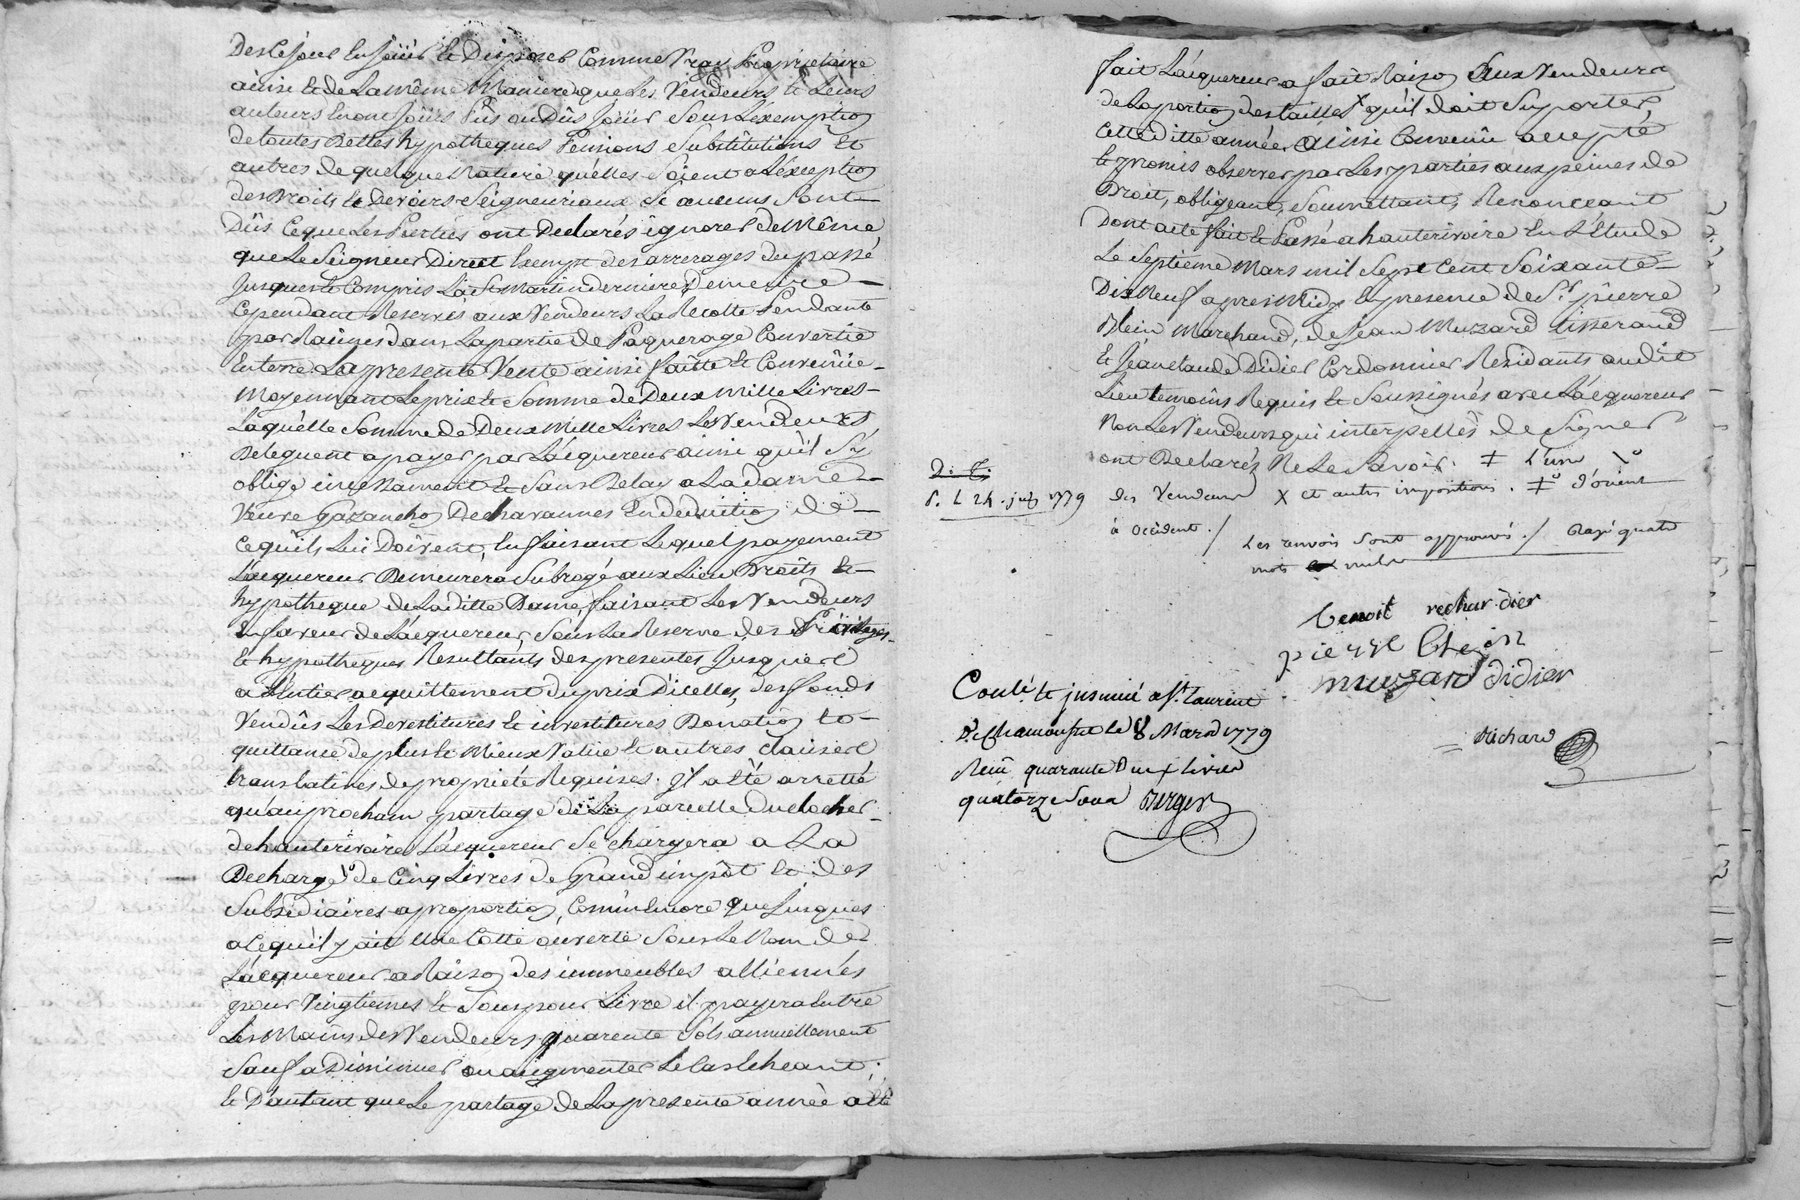 Des Cejour En Joüir et Disposer Comme Vray Proprietaire
ainsi et de La même Maniere que Les Vendeurs et Leurs
auteurs En ont Joüis Pûs ou Dûs Joüir Sous L'éxemption
de toutes Dettes hypotheques Pensions Substitutions Et
autres de quelque Nature qu'elles Soient a L'éxception
des Droits et Devoirs Seigneuriaux Si aucuns Sont
Dûs Ce que Les Parties ont Declarés ignorer de Même
que Le Seigneur Direct Exempt des arrerages du passé
Jusques et Compris La St Martin derniere Demeure
Cependant Reservés aux Vendeurs La Recolte Pendante
par Racines dans La partie de Paquerage Convertie
En terre. La presente Vente ainsi faitte et Convenüe
Moyennant Le prix et Somme de Deux Mille Livres
Laquélle Somme de Deux Mille Livres Les Vendeurs
Deleguent a payer par L'acquereur ainsi qu'il S'y
oblige incessament et Sans Delay a La dame
Veuve Gazanchon Decharannes En deduition de
Ce qu'ils Lui Doivent, En faisant Lequel payement
L'acquereur Demeurera Subrogé aux Lieu Droits et
hypotheque de Laditte Dame, faisant Les Vendeurs
En faveur de L'acquereur, Sous La Reserve des Privileges
et hypotheques Resultants des presentes Jusques
a L'Entier acquittement du prix D'icelles, des fonds
Vendûs Les Devestitures et investitures Donation et
quittance de plus et Mieux Value et autres clauses
translatives de propriété Requises. Jl a Eté arretté
qu'au prochain partage de La parcelle du clocher
de hauterivoire L'acquereur Se chargera a La
Decharge de Cinq Livres de Grand impôt Et des
Subsidiaires a proportion, Comm'Encore que Jusques
a Cequ'il y ait Une Cotte ouverte Sous Le Nom de
L'acquereur a Raison des immeubles alliennés
pour Vingtiemes et Sous pour Livre il payera Entre
Les Mains des Vendeurs quarente Sols annuellement
Sauf a Diminuer ou augmenter Le Cas Echeant;
Et D'autant que Le partage de La presente année a Eté
fait L'acquereur a fait Raison aux Vendeurs
de La portion des tailles x qu'il doit Suporter
Cette ditte année. Ainsi Convenû accepté
Et promis observer par Les parties aux peines de
Droit, obligeant, Soumettant, Renonceant
Dont acte fait et Passé a hauterivoire En L'Etude
Le Septieme Mars mil Sept Cent Soixante
Dix Neuf apres Midy En presence de Sr. pierre
Blein Marchand, de Jean Muzard tisserand
Et Jean Claude Didier Cordonnier Residants audit
Lieu temoins Requis Et Soussignés avec L'acquereur
Non Les Vendeurs qui interpellés de Signer
ont Declarés Ne Le Savoir. ‡ L'un
des Vendeurs x et autres impositions. ‡ d'orient
à occident ./ Les renvois Sont approuvés ./ Rayé quatre
mots nuls
D. C.
P. L 24. juin 1779
Benoit rechar dier
pierre Blein
muzard didier
Richard
Conlé. et jnsinué a St. laurent
de Chamousset le 8 Mars 1779
Reçû quarante Deux livres
quatorze sous Berger